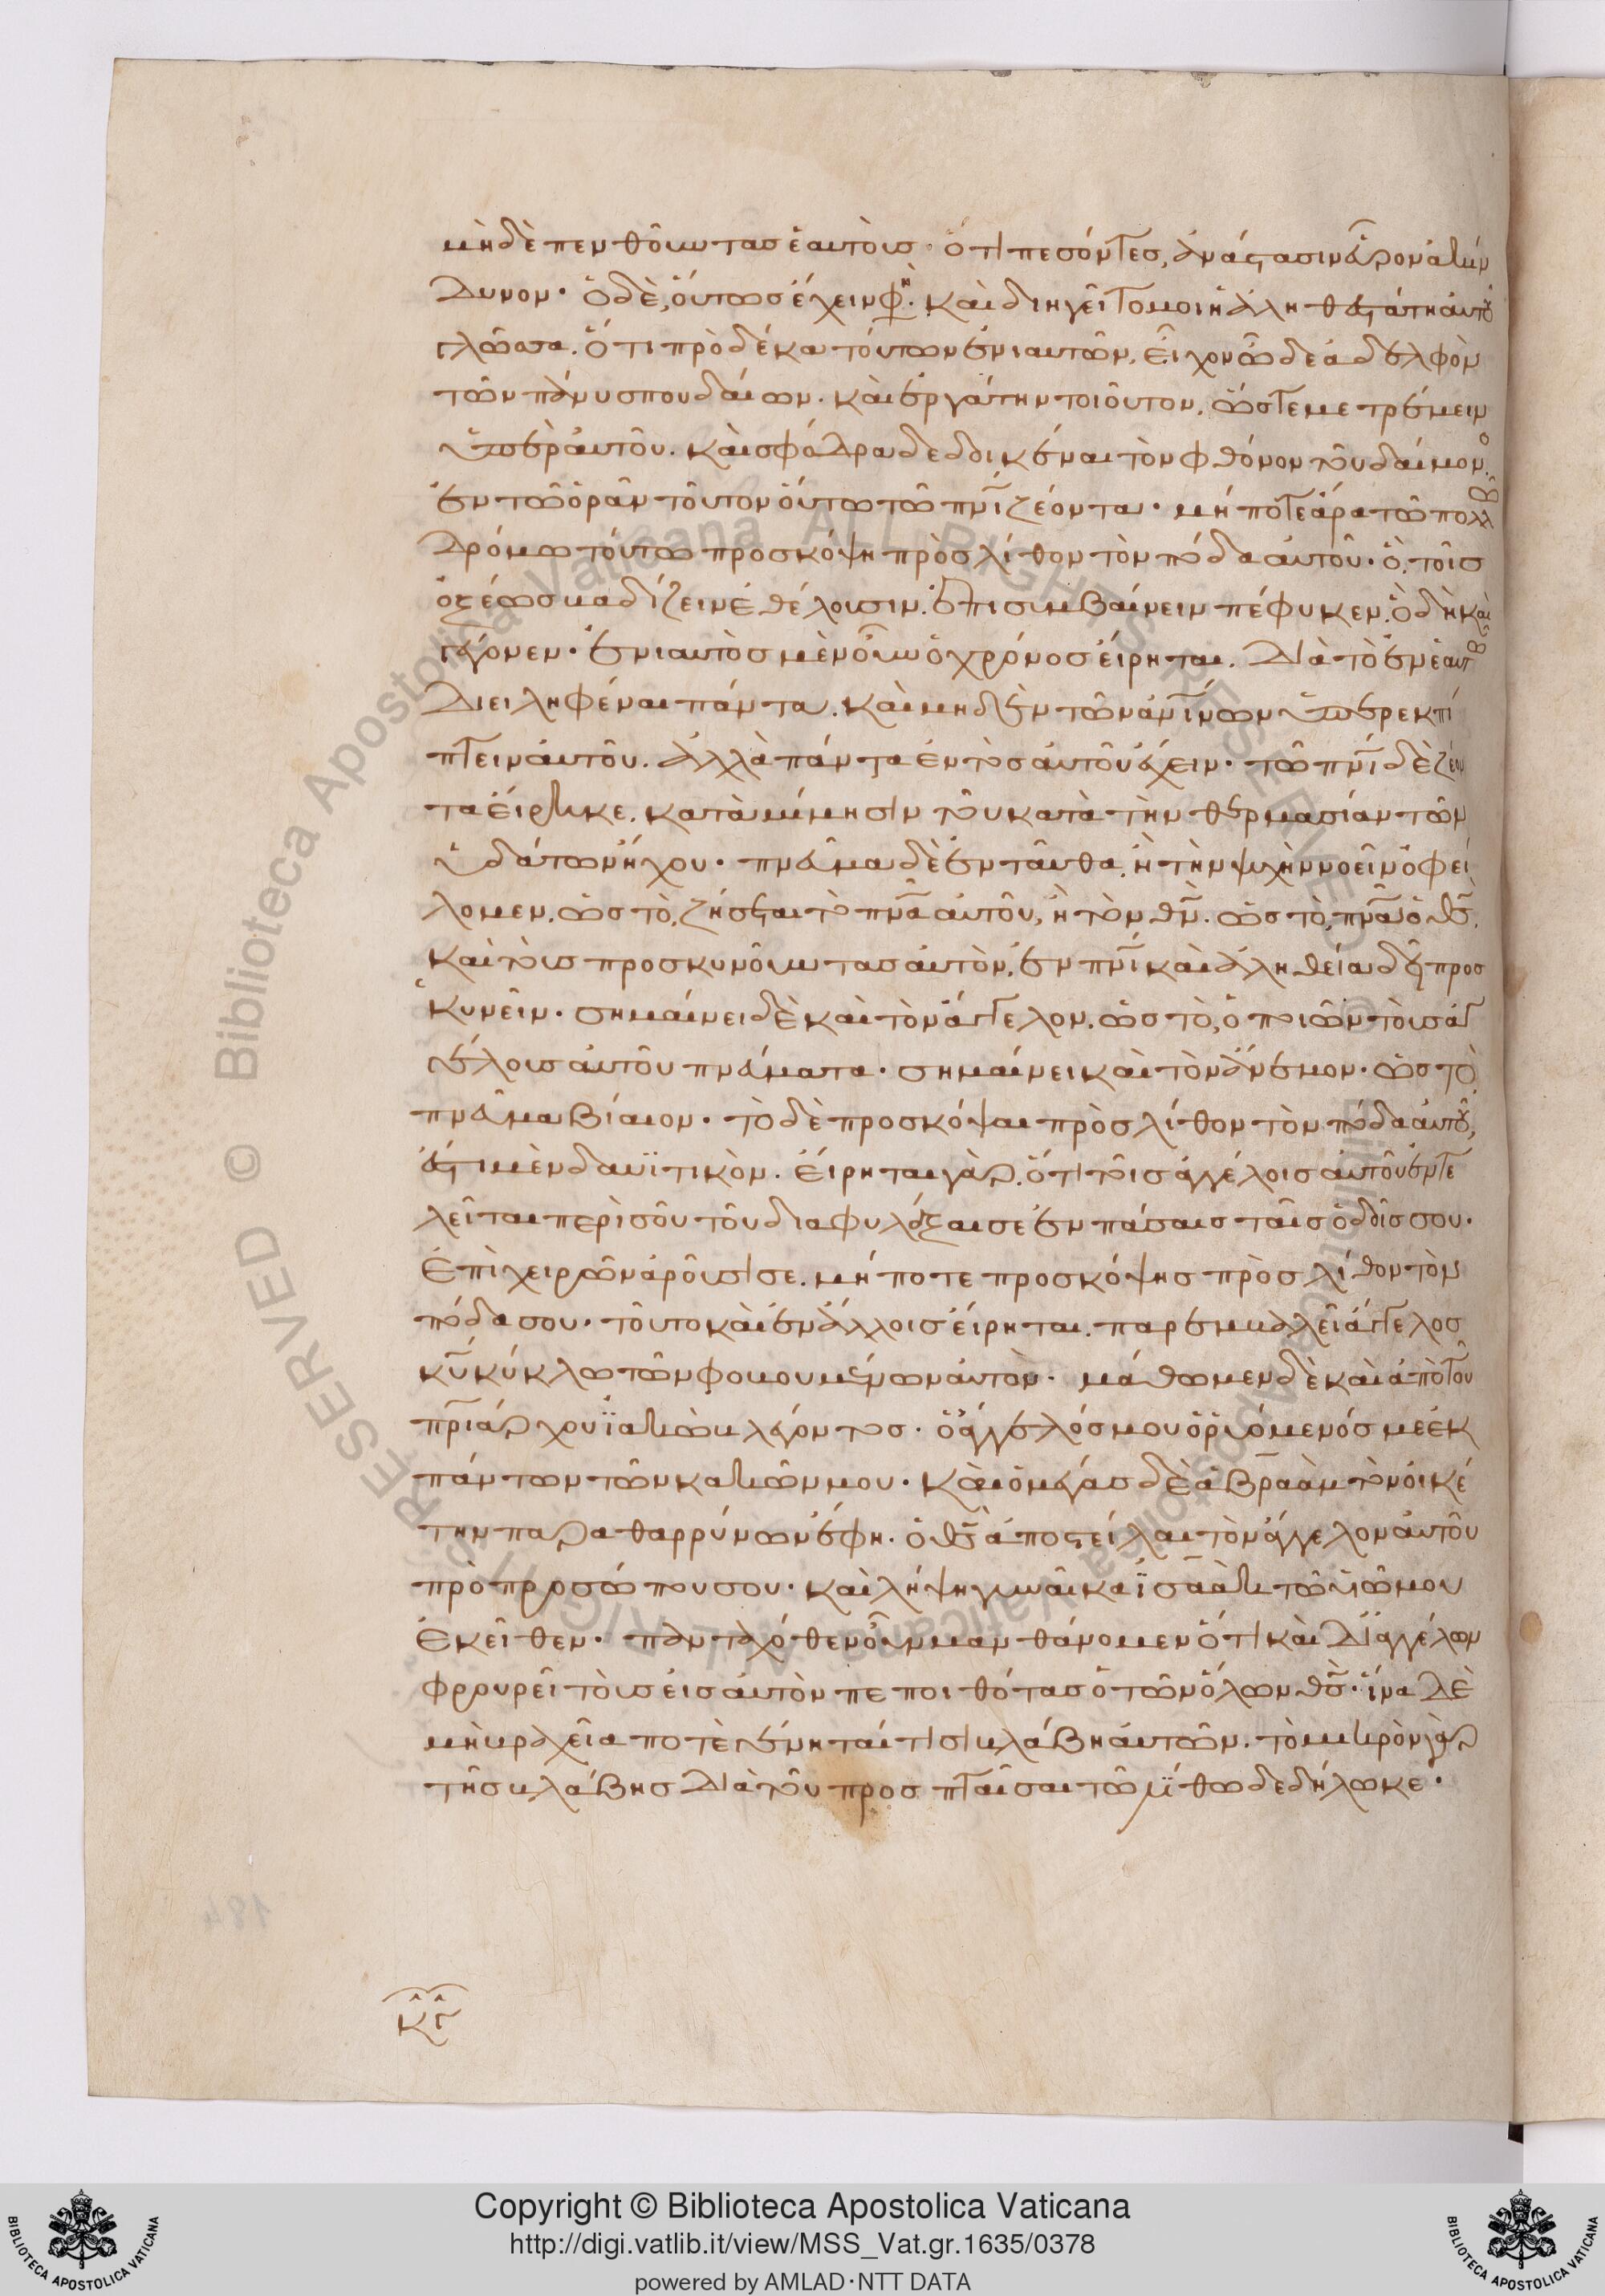 μὴ δὲ πενθοῦντας ἑαυτούς· ὅτι πεσόντες, ἀνάστασιν εὗρον ἀκίν
δυνον· ὁ δὲ, οὕτως ἔχειν φη. καὶ διηγεῖτο μοι ἡ ἀληθεστάτη αὐτοῦ
γλῶσσα. ὅτι πρὸ δέκα τούτων ἐνιαυτῶν, εἶχον ὧδε ἀδελφὸν
τῶν πάνυ σπουδαίων. καὶ ἐργάτην τοιοῦτον, ὥστε με τρέμειν
ὑπὲρ αὐτοῦ. καὶ σφόδρα δεδοικέναι τὸν φθόνον τοῦ δαίμονο
ἐν τῶ ὁρᾶν τοῦτον οὕτω τῶ πνι ζέοντα· μή ποτε ἄρα τῶ πολλῶ
δρόμω τούτω προσκόψη πρὸς λίθον τὸν πόδα αὐτοῦ· ὃ, τοῖς
ὀξέως βαδίζειν ἐθέλουσιν, ἐπισυμβαίνειν πέφυκεν. ὃ δὴ καὶ
γέγονεν· ἐνιαυτὸς μὲν οὖν ὁ χρόνος εἴρηται. διὰ τὸ ἐν ἑαυτῶ
διειληφέναι πάντα. καὶ μηδὲν τῶν ἀνίνων ὑπερεκπί
πτειν αὐτοῦ. ἀλλὰ πάντα ἐντὸς αὐτοῦ ἔχειν· τῶ πνι δὲ ζέον
τα εἴρηκε. κατὰ μίμησιν τοῦ κατὰ τὴν θερμασίαν τῶν
ὑδάτων ἤχου· πνεῦμα δὲ ἐνταῦθα, ἢ τὴν ψυχὴν νοεῖν ὀφεί
λομεν. ὡς τὸ, ζήσεται τὸ πνα αὐτοῦ, ἢ τὸν θν. ὡς τὸ, πνα ὁ θς.
καὶ τοὺς προσκυνοῦντας αὐτὸν, ἐν πνι καὶ ἀληθεία δεῖ προσ
κυνεῖν· σημαίνει δὲ καὶ τὸν ἄγγελον. ὡς τὸ, ὁ ποιῶν τοὺς ἀγ
γέλους αὐτοῦ πνεύματα· σημαίνει καὶ τὸν ἄνεμον· ὡς τὸ
πνεῦμα βίαιον· τὸ δὲ προσκόψαι πρὸς λίθον τὸν πόδα αὐτοῦ,
ἔστι μὲν δαυϊτικὸν. εἴρηται γὰρ. ὅτι τοῖς ἀγγέλοις αὐτοῦ ἐντε
λεῖται περὶ σοῦ τοῦ διαφυλάξαι σε ἐν πάσαις ταῖς ὁδοῖς σου·
ἐπὶ χειρῶν ἀροῦσι σε. μή ποτε προσκόψης πρὸς λίθον τὸν
πόδα σου· τοῦτο καὶ ἐν ἄλλοις εἴρηται. παρεμβαλεῖ ἄγγελος
κυ κύκλω τῶν φοβουμένων αὐτὸν· μάθωμεν δὲ καὶ ἀπὸ τοῦ
πριάρχου ϊακὼβ λέγοντος· ὁ ἄγγελός μου ὁ ῥυόμενός με ἐκ
πάντων τῶν κακῶν μου· καὶ ὁ μέγας δὲ ἁβραὰμ τὸν οἰκέ
την παραθαρρύνων ἔφη. ὁ θς ἀποστείλαι τὸν ἄγγελον αὐτοῦ
πρὸ προσώπου σου· καὶ λήψη γυναῖκα ϊσαὰκ τῶ υἱῶ μου
ἐκεῖθεν· πανταχόθεν οὖν μανθάνομεν ὅτι καὶ δι ἀγγέλων
φρουρεῖ τοὺς εἰς αὐτὸν πεποιθότας ὁ τῶν ὅλων θς· ἵνα δὲ
μὴ βραχεῖα ποτὲ γένηται τισι βλάβη αὐτῶν. τὸ μικρὸν γὰρ
τῆς βλάβης διὰ τοῦ προσπταῖσαι τῶ λίθω δεδήλωκε·
Copyright © Biblioteca Apostolica Vaticana
http://digi.vatlib.it/view/MSS_Vat.gr.1635/0378
powered by AMLAD·NTT DATA